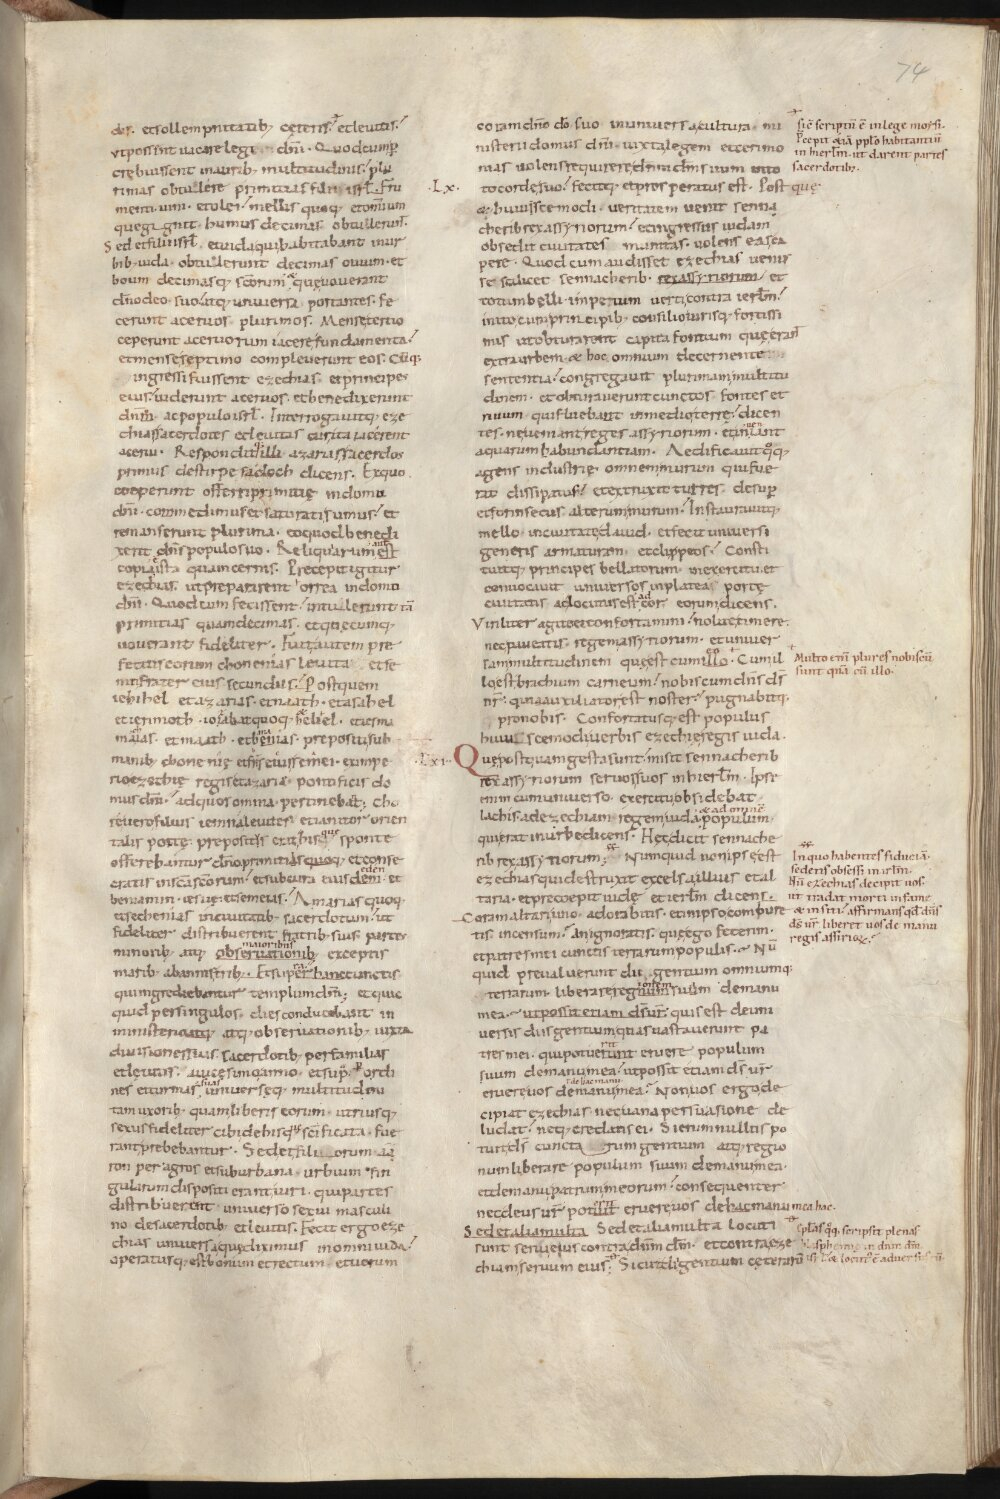 74
dēs. et sollempnitatib; cęteris. et leuitis.
ut possent uacare legi dn̄i. Quod cum p̄
crębuissent in aurib; multitudinis. plu
rimas obtulere primitias filii isrl̄. Fru
menti. uini. et olei. mellis quoq; et omnium
que gignit humus decimas obtulerunt.
Sed et filii isrl̄ et iuda qui habitabant in ur
bib; iuda. obtulerunt decimas ouium. et
boum decimasq; sc̄orum quę uouerant
dn̄o deo suo. atq; uniuersa portantes. fe
cerunt aceruos plurimos. Mense tertio
ceperunt aceruorum iacere fundamenta.
et mense septimo compleuerunt eos. Cūq;
ingressi fuissent ezechias. et principes
eius. uiderunt aceruos. et benedixerunt
dn̄m. ac populo isrl̄. Interrogauitq; eze
chias sacerdotes et leuitas cur ita iacerent
acerui. Respondit illi azarias sacerdos
primus de stirpe sadoch dicens. Ex quo
coeperunt offerri primitię in domo
dn̄i. commedimus et saturati sumus. et
remanserunt plurima. eo quod benedi
xerit dn̄s populo suo. Reliquarum est
copia ista quam cernis. Precepit igitur
ezechias. ut prepararent orrea in domo
dn̄i. Quod cum fecissent. intulerunt tā
primitias quam decimas. et quęcumq;
uouerant fideliter. Fuit autem pre
fectus eorum chonenias leuita. et se
mei frater eius secundus. Post quem
iehihel et azarias. et naath. et asahel
et ierimoth. iozabat quoq; heliel. et iesma
maias. et maath. et benaias. prepositi sub
manib; chonenię et semei. ex impe
rio ezechię regis et azarię pontificis do
mus dn̄i. ad quos omnia pertinebat. Cho
re uero filius iemna leuites et ianitor orien
talis portę. prepositus erat his quę sponte
offerebantur dn̄o primitiisq; et conse
cratis in sc̄a sc̄orum. et sub cura eius eden. et
beniamin. iesuę. et semeias. Amarias quoq;
et sechenias in ciuitatib; sacerdotum. ut
fideliter distribuerent fratrib; suis partes
minorib; atq; obseruationib; exceptis
maioribus
marib; ab annis trib; et supra hanc cunctis
qui ingrediebantur templum dn̄i; et quic
quid per singulos dies conducebant in
ministerio atq; obseruationib; iuxta
diuisiones suas sacerdotib; per familias
et leuitis. a uicesimo anno. et sup̄. p ordi
nes et turmas suas uniuersęq; multitudini
tam uxorib; quam liberis eorum. utriusq;
sexus fideliter cibi de his quę sc̄ificata fue
rant prebebantur. Sed et filiorum aā
ron per agros et suburbana urbium sin
gularum dispositi erant uiri. qui partes
distribuerent uniuerso sexui masculi
no de sacerdotib; et leuitis. Fecit ergo eze
chias uniuersa quę diximus in omni iuda.
operatusq; est bonum et rectum. et uerum
coram dn̄o dō suo in uniuersa cultura mi
nisterii domus dn̄i. iuxta legem et cerimo
nias uolens requirere dn̄m dm̄ suum in to
·Lx· to corde suo. fecitq; et prosperatus est. Post quę
& huiuscemodi. ueritatem uenit senna
cherib rex assyriorum. et ingressus iudam
obsedit ciuitates munitas. uolens eas ca
pere. Quod cum audisset ezechias uenis
se scilicet sennacherib. rex assyriorum. et
totum belli impetum uerti contra ierlm̄.
inito cum principib; consilio uirisq; fortissi
mis ut obturarent capita fontium quę eran̄
extra urbem. & hoc omnium decernente
sententia. congregauit plurimam multitu
dinem. et obturauerunt cunctos fontes et
riuum qui fluebant in medio terrę. dicen
tes. ne ueniant reges assyriorum. et inueniant
aquarum habundantiam. Aedificauit q̄q;
agens industrię omnem murum qui fue
rat dissipatus. et extruxit turres desup̄
et forinsecus alterum murum. Instaurauitq;
mello in ciuitate dauid. et fecit uniuersi
generis armaturam et clippeos. Consti
tuitq; principes bellatorum in exercitu et
conuocauit uniuersos in platea portę
ciuitatis ac locutus est ad cor eorum dicens.
Viriliter agite et confortamini. nolite timere.
nec paueatis regem assyriorum. et uniuer
sam multitudinem quę est cum illo. Cum il
lo est brachium carneum. nobiscum dn̄s ds̄
nr̄. qui auxiliator est noster. pugnabitq;
pro nobis. Confortatusq; est populus
huiuscemodi uerbis ezechię regis iuda.
·Lxi· Quę postquam gesta sunt. misit sennacherib
rex assyriorum seruos suos in hierlm̄. Ipse
enim cum uniuerso exercitu obsidebat
lachis. ad ezechiam regem iudā & ad omnē populum
qui erat in urbe dicens. Hęc dicit sennache
rib rex assyriorum. Numquid non ipse est
ezechias qui destruxit excelsa illius et al
taria. et precoepit iudę et ierlm̄ dicens.
Coram altari uno adorabitis. et in ipso combure
tis incensum. an ignoratis quę ego fecerim.
et patres mei cunctis terrarum populis. Nū
quid preualuerunt dii gentium omniumq;
terrarum. liberare regionem suam de manu
mea. ut possit etiam ds̄ ur̄. quis est de uni
uersis diis gentium quas uastauerunt pa
tres mei. qui potuerit eruere populum
suum de manu mea. ut possit etiam ds̄ ur̄
eruere uos de hac manu mea. Non uos ergo de
cipiat ezechias. nec uana persuasione de
ludat. neq; credatis ei. Si enim nullus po
tuit ds̄ cunctarum gentium atq; regio
num liberare populum suum de manu mea.
et de manu patrum meorum. consequenter
nec deus ur̄ poterit eruere uos de hac manu mea hac.
Sed et alia multa Sed et alia multa locuti
sunt serui eius contra dn̄m dm̄. et contra eze
chiam seruum eius. Sicut dii gentium cęterarū
sic̄ scriptū ē in lege moysi.
Precepit etiā ppl̄o habitanti
in hierlm̄. ut darent partes
sacerdotib;.
Multo enī plures nobiscū
sunt quā cū illo.
In quo habentes fiduciā.
sederis obsessi in irlm̄.
Nū ezechias decipit uos.
ut tradat morti in fame
& in siti. affirmans qd̄ dn̄s
ds̄ ur̄ liberet uos de manu
regis assiriox̄.
Ep̄las q̄q; scripsit plenas
blasphemię in dn̄m dm̄
isrl̄. & locut; ē aduersus eū.